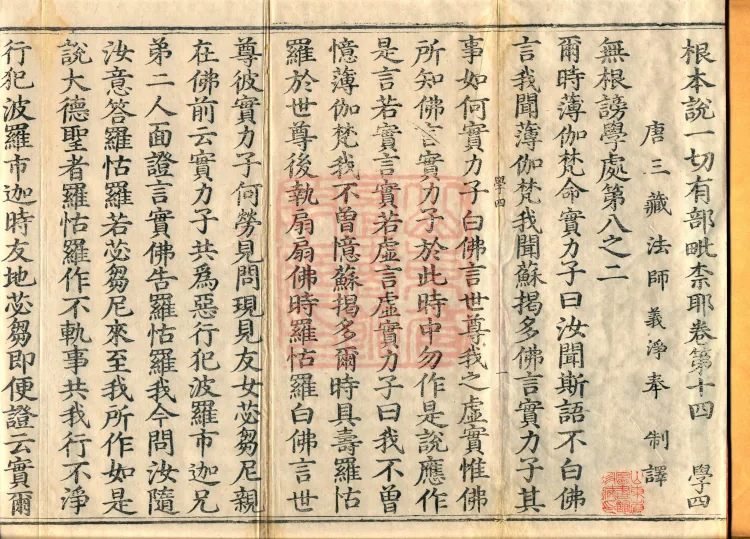 根本說一切有部毗柰耶卷第十四 學四
唐三藏法師義淨奉 制譯
無根謗學處第八之二
爾時薄伽梵命實力子曰汝聞斯語不白佛
言我聞薄伽梵我聞蘇揭多佛言實力子其
學四
事如何實力子白佛言世尊我之虛實惟佛
所知佛言實力子於此時中勿作是說應作
是言若實言實若虛言虛實力子曰我不曾
憶薄伽梵我不曾憶蘇揭多爾時具壽羅怙
羅於世尊後執扇扇佛時羅怙羅白佛言世
尊彼實力子何勞見問現見友女苾芻尼親
在佛前云實力子共為惡行犯波羅市迦兄
弟二人面證言實佛告羅怙羅我今問汝隨
汝意答羅怙羅若苾芻尼來至我所作如是
說大德聖者羅怙羅作不軌事共我行不淨
行犯波羅市迦時友地苾芻即便證云實爾